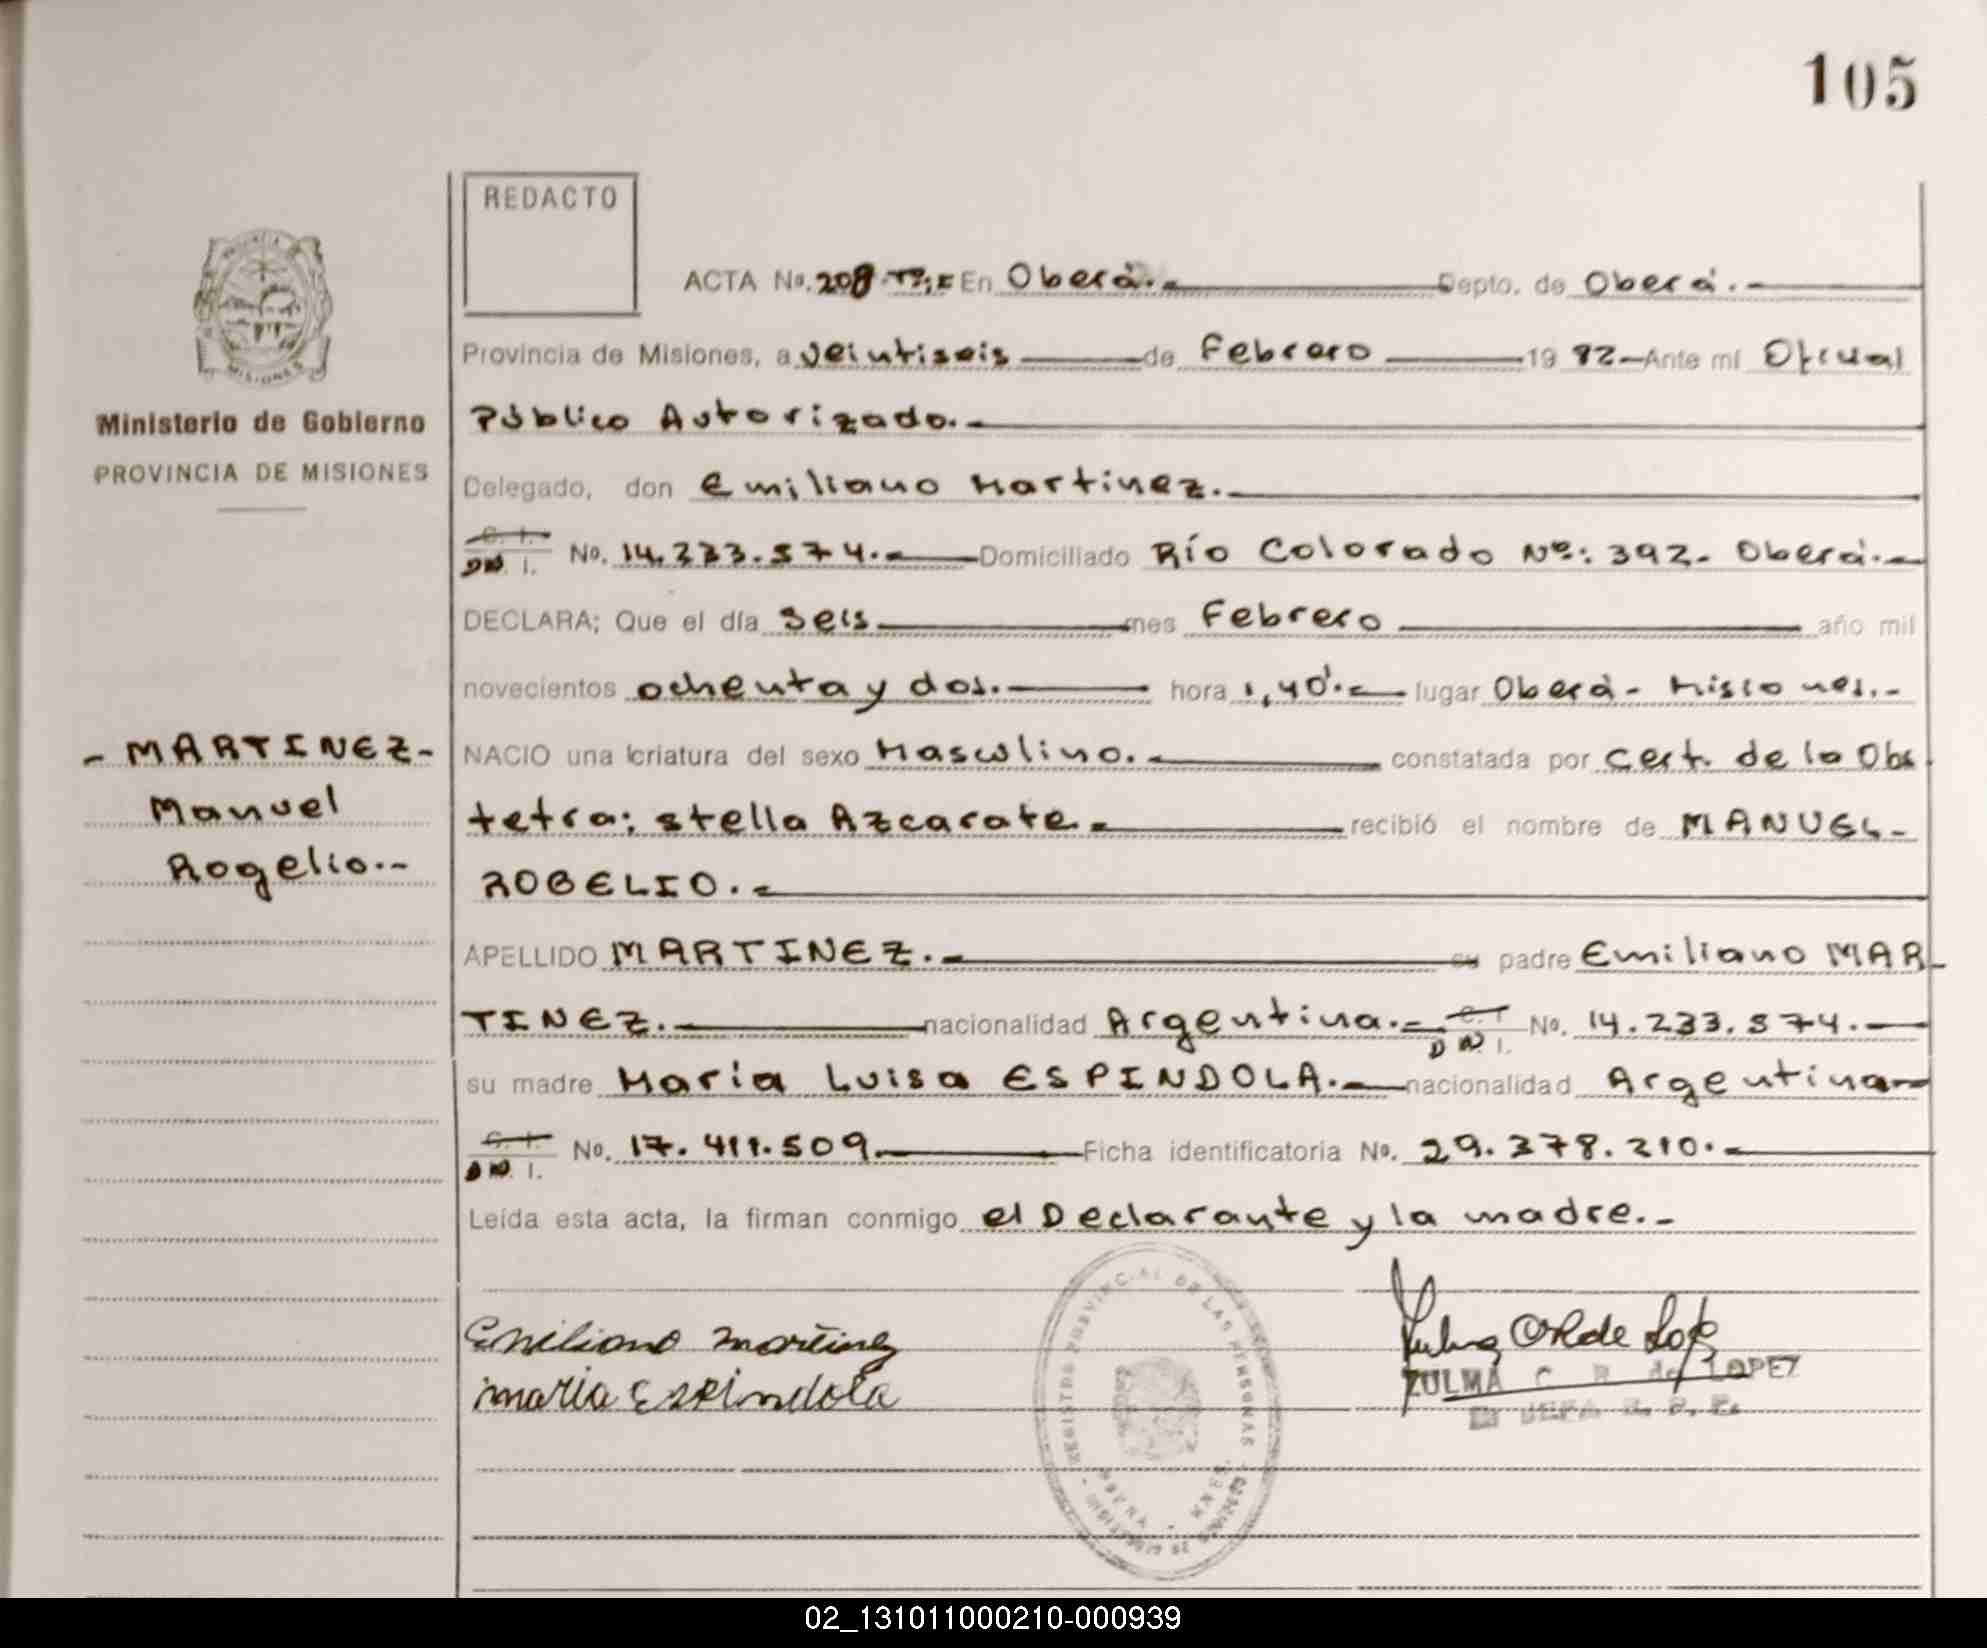 105
REDACTO
ACTA No. 208 En Oberá.- Depto. de Oberá.-
Provincia de Misiones, a veintiseis de Febrero 19 82- Ante mí Oficial
Público Autorizado.-
Ministerio de Gobierno
PROVINCIA DE MISIONES
Delegado, don Emiliano Martinez.-
C. I.
DNI. No. 14.233.574.- Domiciliado Río Colorado Nº: 392- Oberá.-
DECLARA; Que el día Seis mes Febrero año mil
novecientos ochenta y dos.- hora 1,40'.- lugar Oberá- Misiones.-
- MARTINEZ-
Manuel
Rogelio.-
NACIO una criatura del sexo Masculino.- constatada por cert. de la Obs
tetra; Stella Azcarate.- recibió el nombre de MANUEL-
ROGELIO.-
APELLIDO MARTINEZ.- su padre Emiliano MAR-
TINEZ.- nacionalidad Argentina.- C. I. DNI. No. 14.233.574.-
su madre María Luisa ESPINDOLA.- nacionalidad Argentina-
C. I.
DNI. No. 17.411.509.- Ficha identificatoria No. 29.378.210.-
Leída esta acta, la firman conmigo el Declarante y la madre.-
Emiliano Martinez
Maria Espindola
REGISTRO PROVINCIAL DE LAS PERSONAS
ZULMA C. R. de LOPEZ
MISIONES
02_131011000210-000939